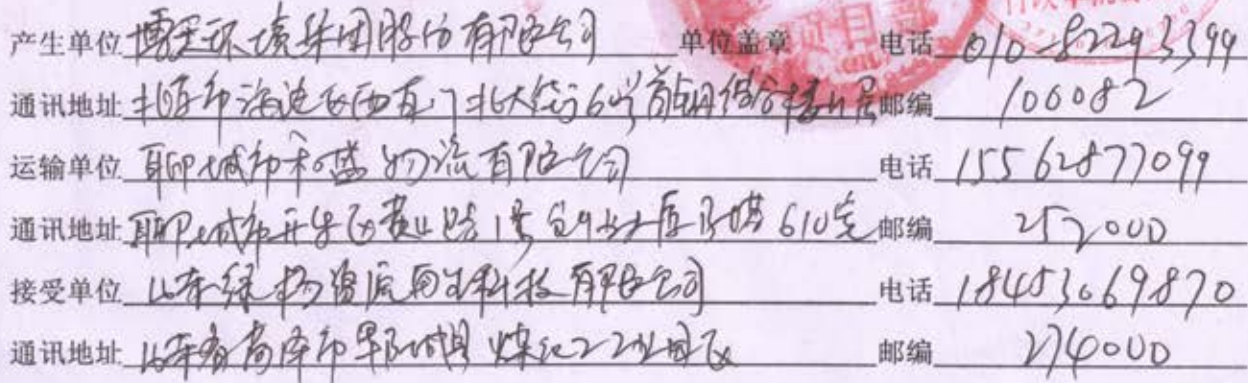 项目部
产生单位 博天环境集团股份有限公司 单位盖章 电话 010-82293399
通讯地址 北京市海淀区西直门北大街60号首钢综合楼11层 邮编 100082
运输单位 聊城市和盛物流有限公司 电话 15562877099
通讯地址 聊城市开发区黄山路1号 610室 邮编 252000
接受单位 山东绿扬资源再生科技有限公司 电话 18453069870
通讯地址 山东省菏泽市鄄城县煤化工工业园区 邮编 274000